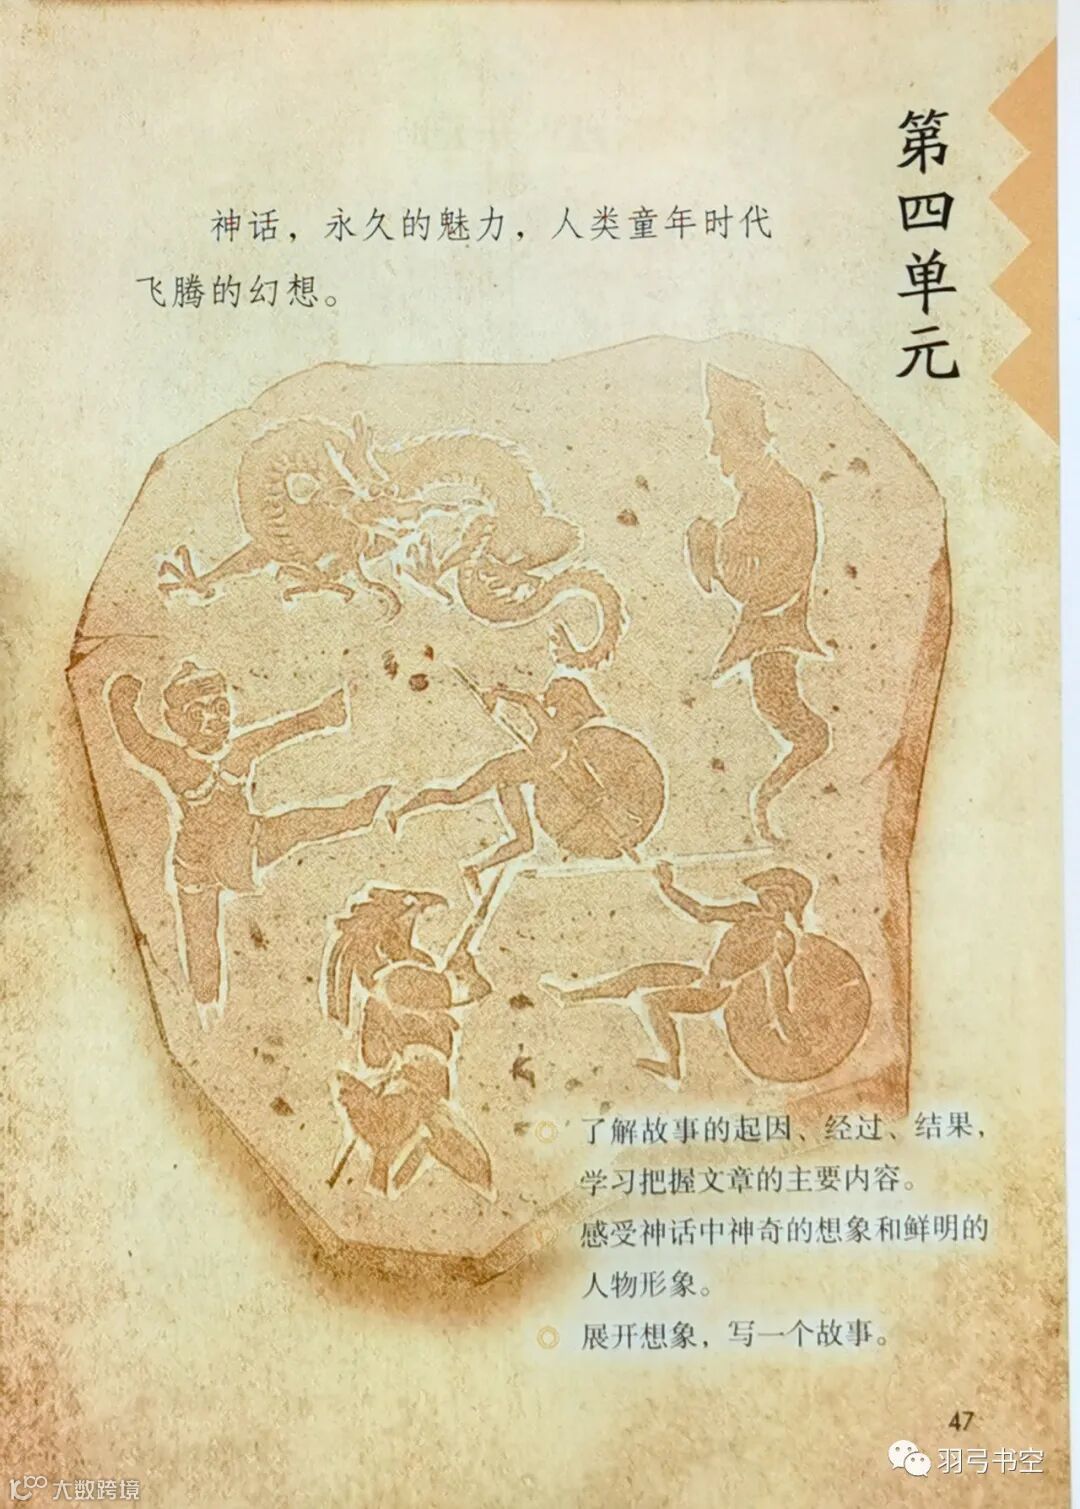 第四单元
神话，永久的魅力，人类童年时代
飞腾的幻想。
了解故事的起因、经过、结果，
学习把握文章的主要内容。
感受神话中神奇的想象和鲜明的
人物形象。
展开想象，写一个故事。
47
羽弓书空
大数跨境